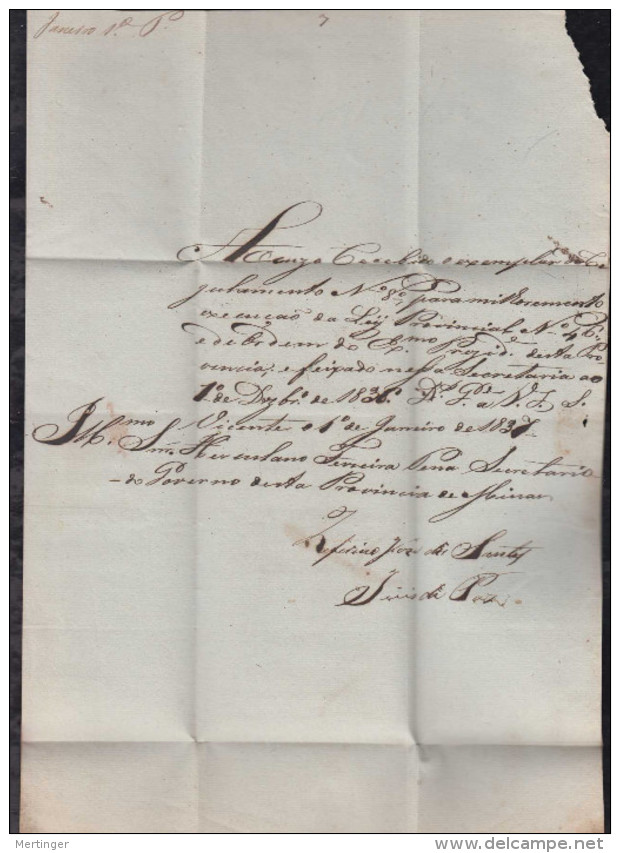 Janeiro 1º P.
Accuzo recebido o exemplar do Re
gulamento Nº 8º para milher
execução da Ley Provincial Nº 46,
e de Ordem do Exmo Prezd. desta Pro
vincia, e feixado nessa Secretaria ao
1º de Dezbrº de 1836. Ds Gde a V. S.
Vicente o 1º de Janeiro de 1837
Illmo Snr. Herculano Ferreira Pena Secretario
do Governo desta Provincia de Minas
Zeferino Joze dos Santos
Juis de Paz
Mertinger
www.delcampe.net